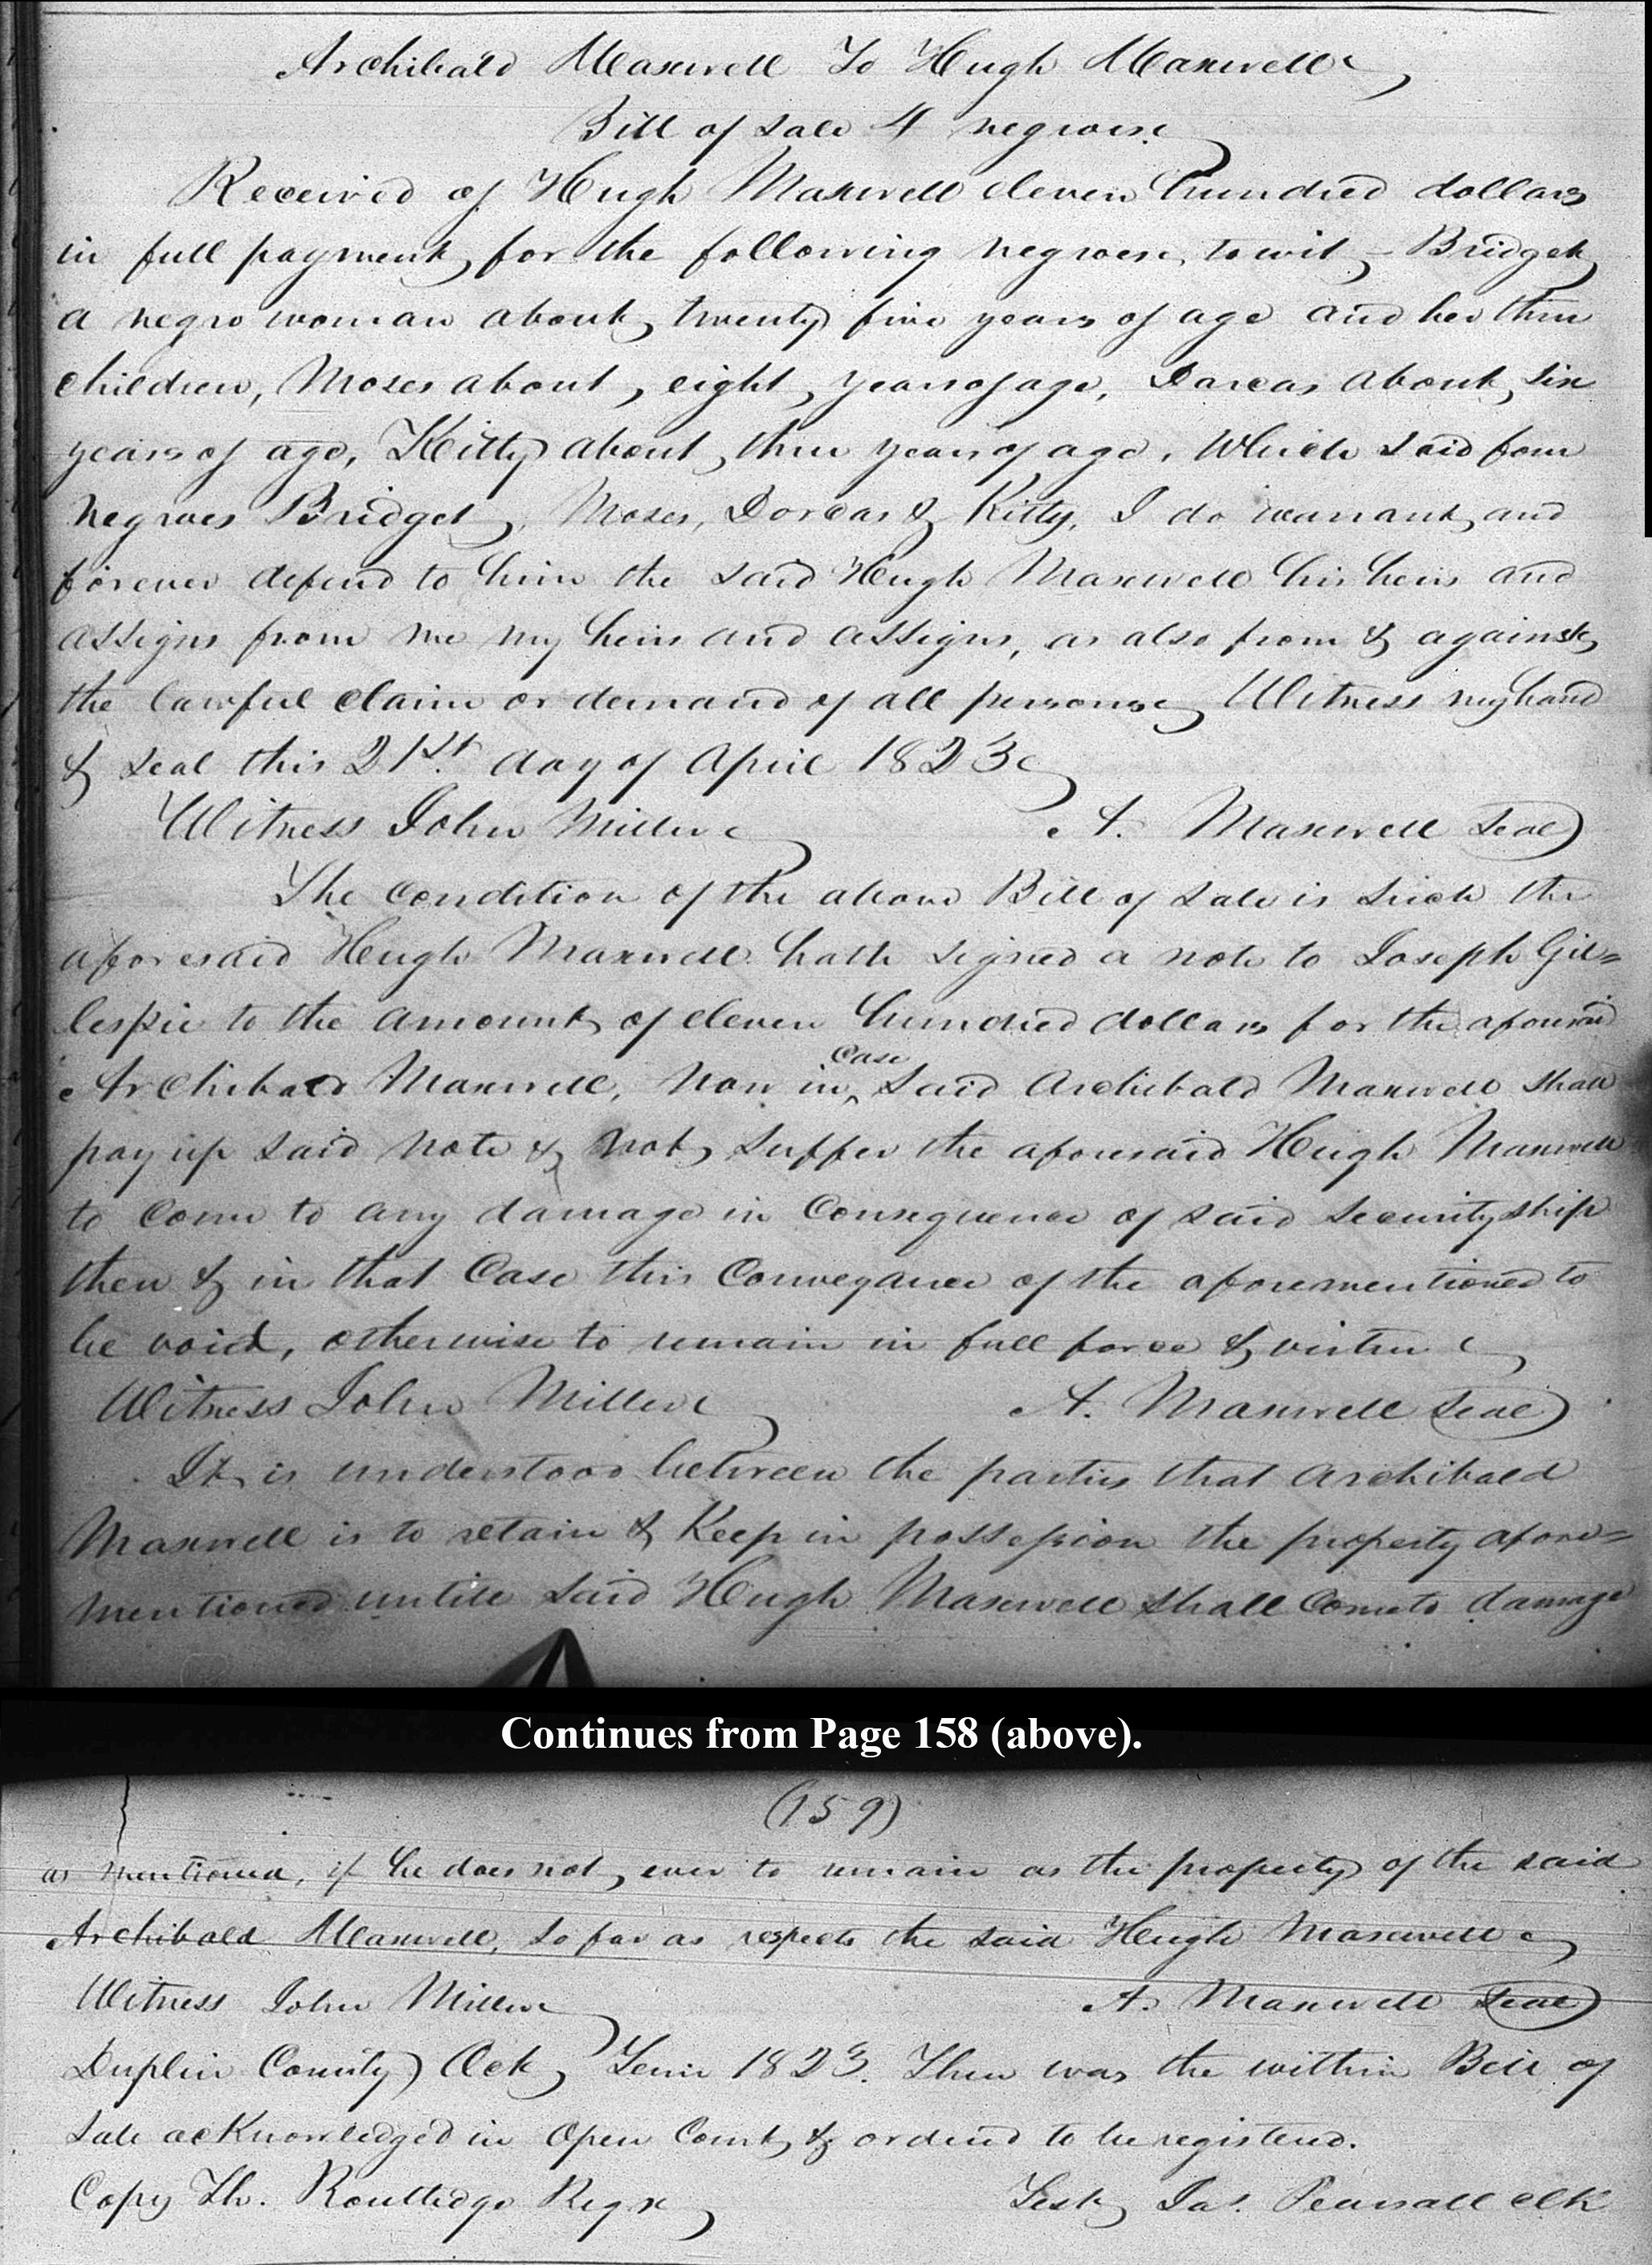 Archibald Maxwell To Hugh Maxwell
Bill of Sale 4 negroes
Received of Hugh Maxwell eleven hundred dollars
in full payment for the following negroes, to wit, - Bridget
a negro woman about twenty five years of age and her three
children, Moses about eight years of age, Darcas about six
years of age, Kitty about three years of age, Which said four
negroes Bridget, Moses, Dorcas & Kitty, I do warrant and
forever defend to him the said Hugh Maxwell his heirs and
assigns from me my heirs and assigns, as also from & against
the lawful claim or demand of all persons, Witness my hand
& seal this 21st. day of April 1823
Witness John Miller A. Maxwell Seal
The condition of the above Bill of Sale is such the
aforesaid Hugh Maxwell hath signed a note to Joseph Gil=
lespie to the amount of eleven hundred dollars for the aforesaid
Archibald Maxwell, Now in case said Archibald Maxwell shall
pay up said note & not suffer the aforesaid Hugh Maxwell
to come to any damage in Consequence of said securityship
then & in that Case this Conveyance of the aforementioned to
be void, otherwise to remain in full force & virtue
Witness John Miller A. Maxwell Seal
It is understood between the parties that Archibald
Maxwell is to retain & Keep in possession the property afore=
mentioned untill said Hugh Maxwell shall Come to damage
Continues from Page 158 (above).
(159)
as mentioned, if he does not, ever to remain as the property of the said
Archibald Maxwell, so far as respects the said Hugh Maxwell
Witness John Miller A. Maxwell Seal
Duplin County Oct, Term 1823. Then was the within Bill of
Sale acKnowledged in Open Court & ordered to be registered.
Copy Th. Routledge Regr Test, Jas. Pearsall clk